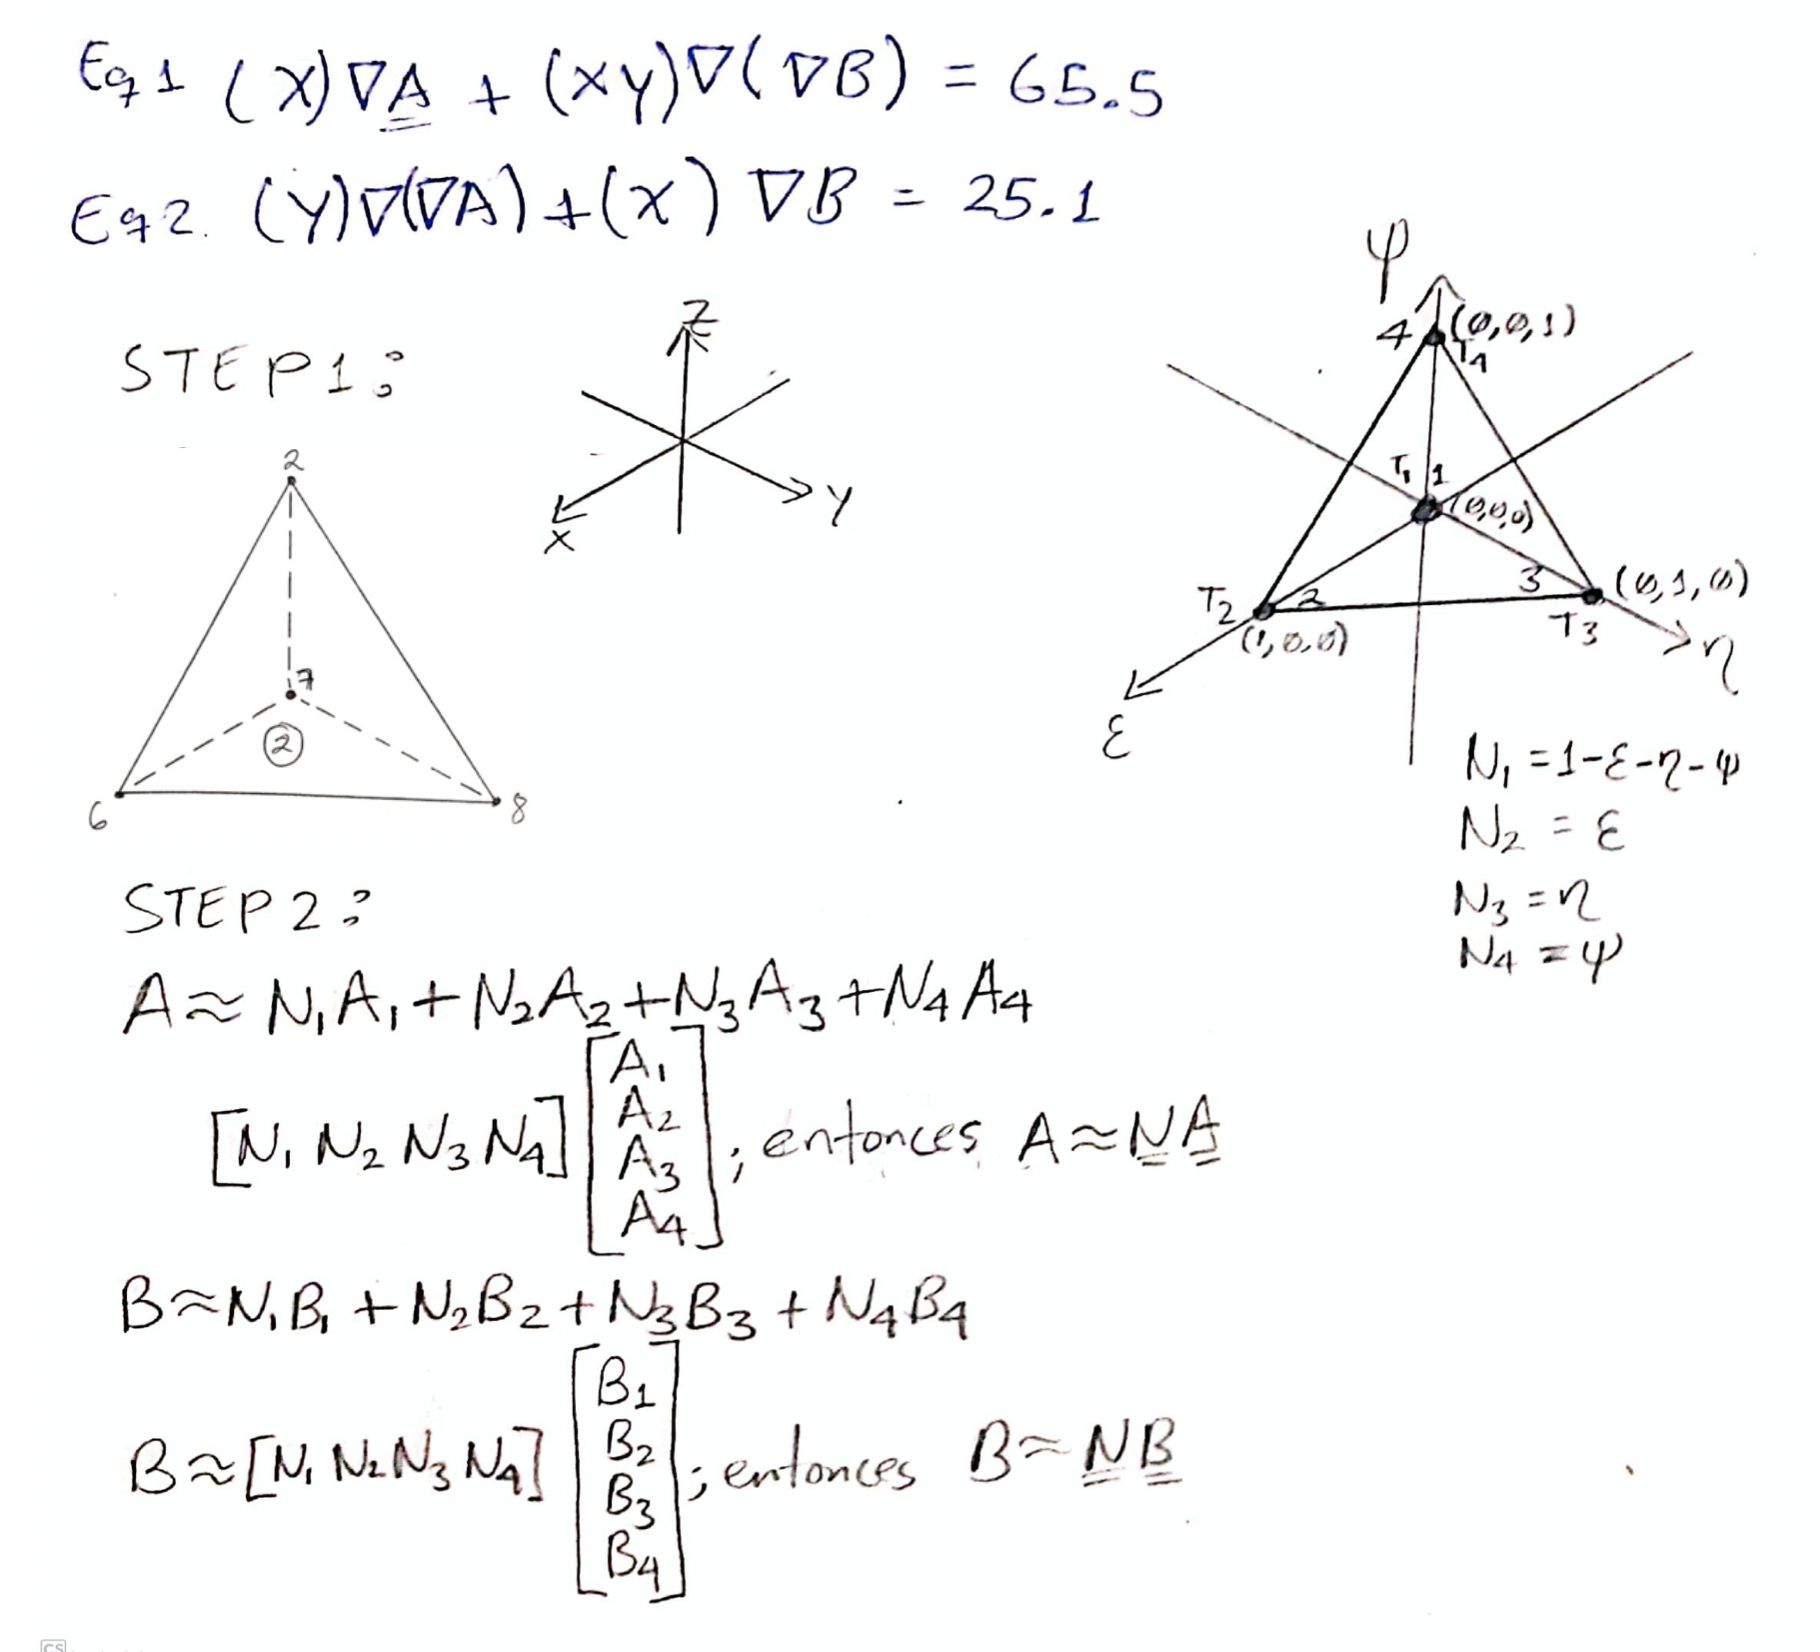 Eq 1 (X)∇A + (XY)∇(∇B) = 65.5
Eq 2. (Y)∇(∇A)+(X) ∇B = 25.1
STEP 1:
Z
X
Y
2
7
②
6
8
ψ
4 (0,0,1)
T4
T1 1 (0,0,0)
T2 2
(1,0,0)
3 (0,1,0)
T3
η
ε
N1 = 1-ε-η-ψ
N2 = ε
N3 = η
N4 = ψ
STEP 2:
A ≈ N1A1 + N2A2 + N3A3 + N4A4
[N1 N2 N3 N4] [A1 A2 A3 A4] ; entonces A ≈ N A
B ≈ N1B1 + N2B2 + N3B3 + N4B4
B ≈ [N1 N2 N3 N4] [B1 B2 B3 B4] ; entonces B ≈ N B
CS